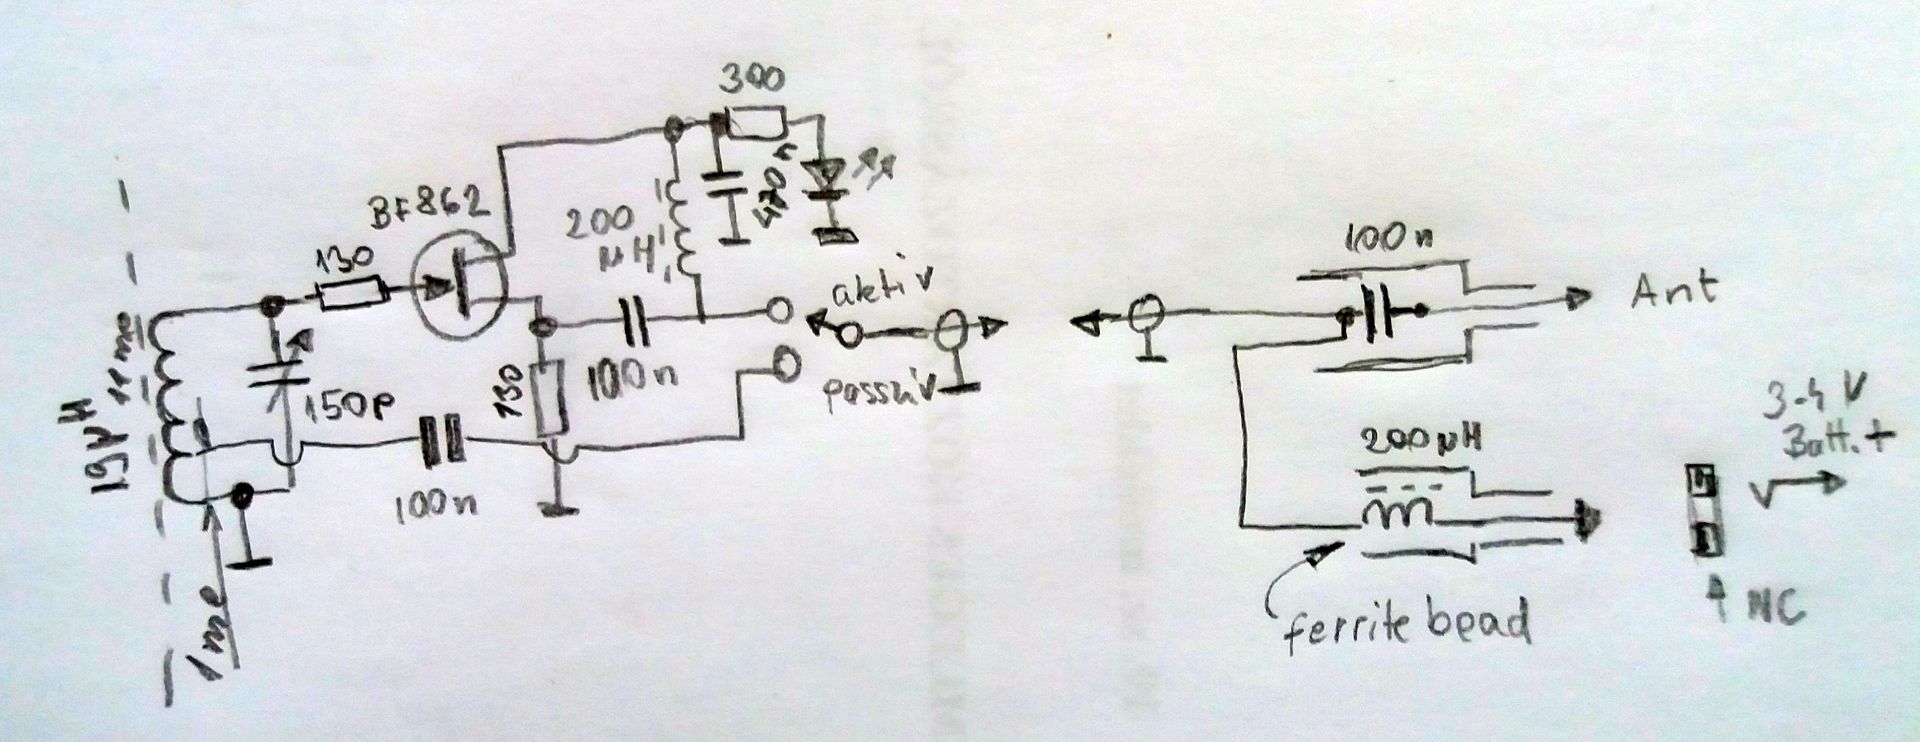 300
BF862
470n
200
µH
130
aktiv
100n
Ant
19µH
150p
130
100n
passiv
3-4V
Batt. +
200µH
100n
NC
ferrite bead